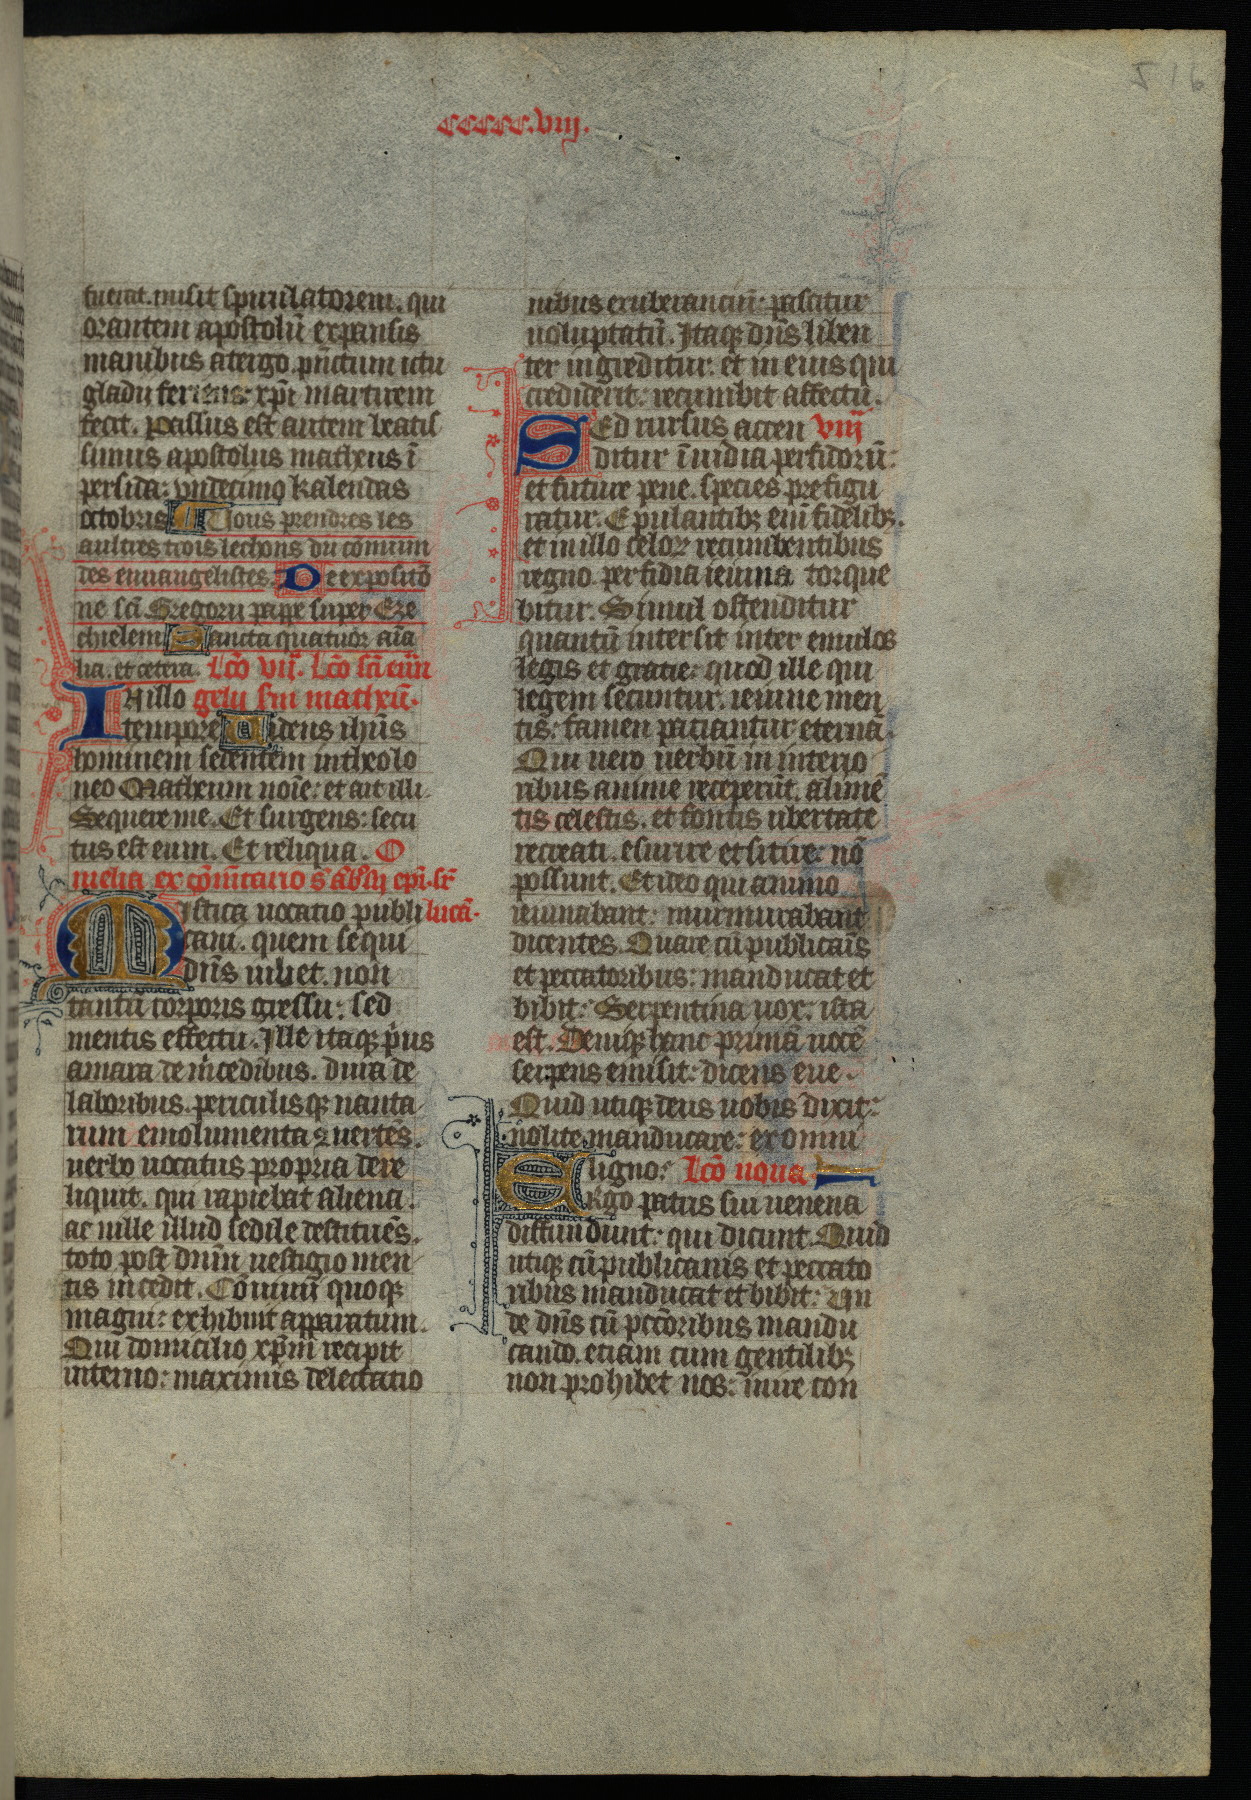 216
ccccc.viij.
fuerat. misit spiculatorem. qui
orantem apostolū expansis
manibus atergo. pūctum ictu
gladii feriens: xp̄i martirem
fecit. Passus est autem beatis
simus apostolus matheus ī
persida: vndecimo kalendas
octobris Vous prendres les
aultres trois lechons du cōmun
des euuangelistes. De expositō
ne sc̄i Gregorii pape super Eze
chielem Sancta quatuor aīa
lia. et cetera. Lc̄o vij. Lc̄o sc̄i euū
IN illo gelij scd̄m matheū.
tempore Uidens ihūs
hominem sedentem in theolo
neo Matheum noīe: et ait illi.
Sequere me. Et surgens: secu
tus est eum. Et reliqua. O
melia ex cōmētario s̄ ābr̄sij ep̄i. sr̄
Mistica uocatio publi lucā.
cani. quem sequi
dn̄s iubet. non
tantū corporis gressu: sed
mentis effectu. Ille itaq; p̄us
auara de m̄cedibus. dura de
laboribus. periculisq; nauta
rum emolumenta auertēs.
uerbo uocatus propria dere
liquit. qui rapiebat aliena.
ac uille illud sedile restituēs.
toto post dn̄m uestigio men
tis incedit. Cōuiuii quoq;
magni: exhibuit apparatum.
Qui domicilio xp̄m recipit
interno: maximis delectatio
nibus exuberanciū: pascitur
uoluptatū. Itaq; dn̄s liben
ter ingreditur. et in eius qui
crediderit: recumbit affectu.
Sed rursus accen viij
ditur īuidia perfidorū:
et future pene. species prefigu
ratur. Epulantib; enī fidelib;.
et in illo celoꝝ recumbentibus
regno. perfidia ieiuna torque
bitur. Simul ostenditur
quantū intersit inter emulos
legis et gratie: quod ille qui
legem secuntur. ieiune men
tis: famen paciantur eternā.
Qui uero uerbū in interio
ribus anime receperūt. alimē
tis celestis. et fontis ubertate
recreati. esurire et sitire: nō
possunt. Et ideo qui animo
ieiunabant: murmurabant
dicentes. Quare cū publicanis
et peccatoribus: manducat et
bibit: Serpentina uox. ista
est. Deniq; hanc primā uocē
serpens emisit: dicens eue.
Quid utiq; deus uobis dixit:
nolite manducare: ex omni
ligno: Lc̄o nona.
Ergo patris sui uenena
diffundunt: qui dicunt. Quid
utiq; cū publicanis et peccato
ribus manducat et bibit: Vn
de dn̄s cū pcc̄oribus mandu
cando. etiam cum gentilib;
non prohibet nos: inire con